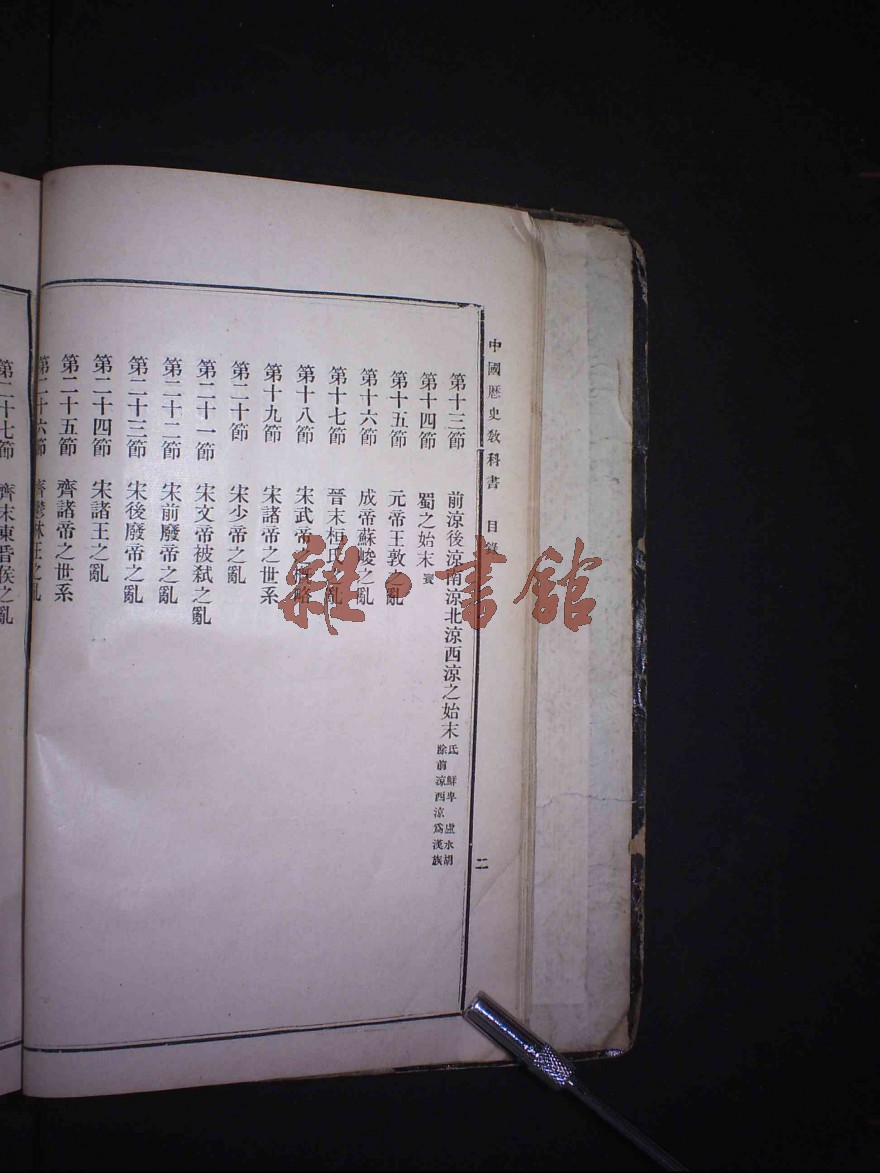 中國歷史教科書 目錄 二
第十三節 前涼後涼南涼北涼西涼之始末 氐 鮮卑 盧水胡 除前涼西涼爲漢族
第十四節 蜀之始末 賨
第十五節 元帝王敦之亂
第十六節 成帝蘇峻之亂
第十七節 晉末桓氏之亂
第十八節 宋武帝 略
第十九節 宋諸帝之世系
第二十節 宋少帝之亂
第二十一節 宋文帝被弒之亂
第二十二節 宋前廢帝之亂
第二十三節 宋後廢帝之亂
第二十四節 宋諸王之亂
第二十五節 齊諸帝之世系
第二十六節 齊鬱林王之亂
第二十七節 齊末東昏侯之亂
雜·書館